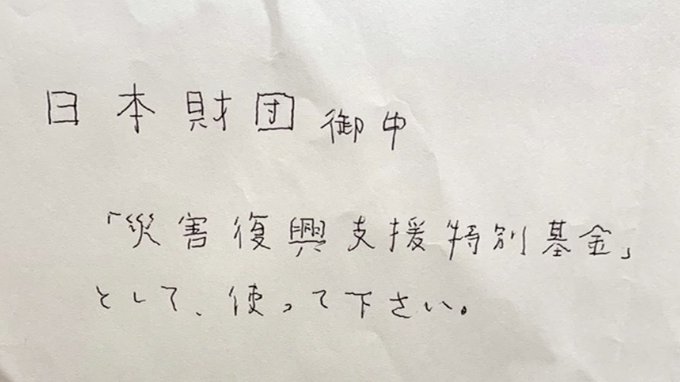 日本財団御中
「災害復興支援特別基金」
として、使って下さい。